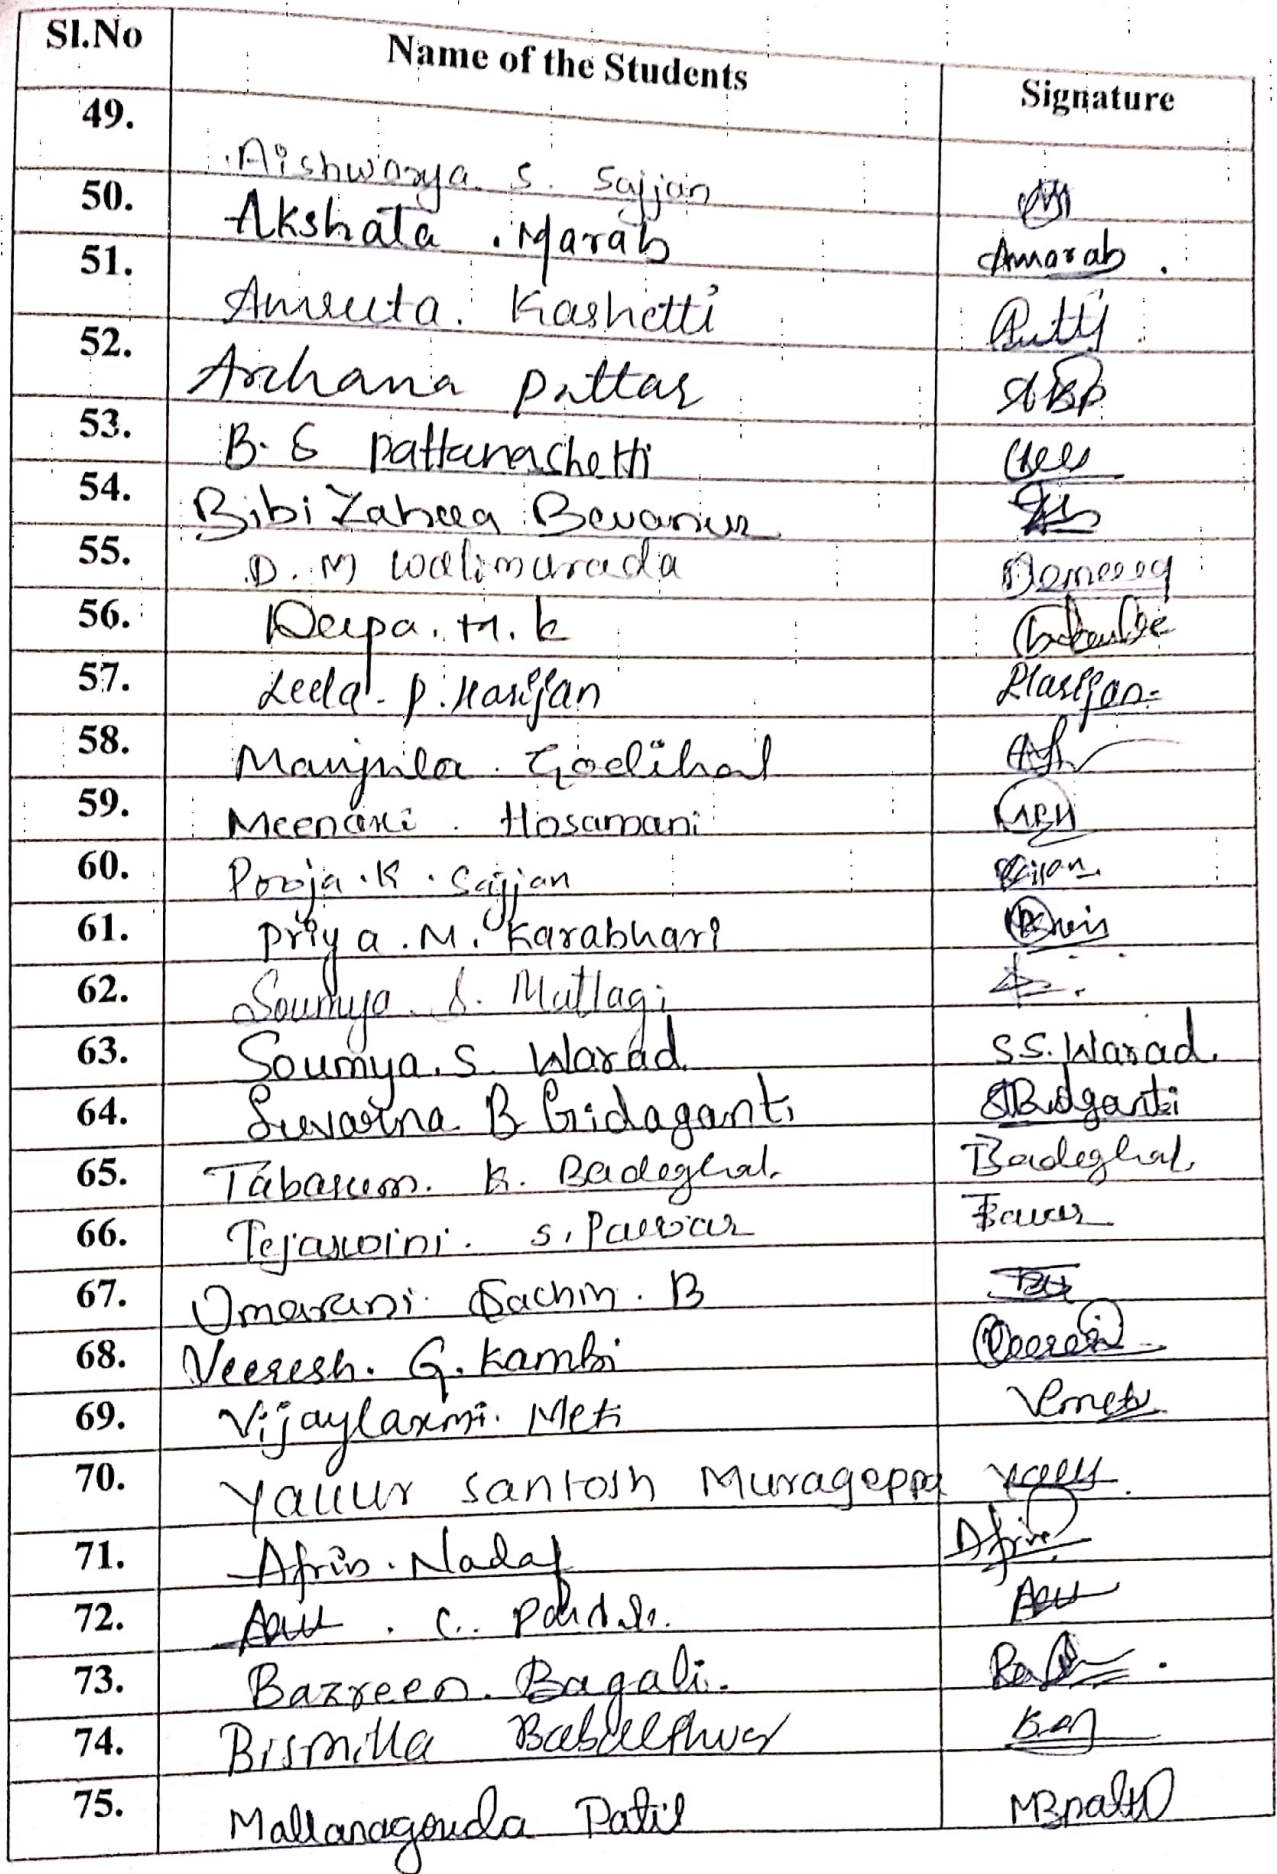 Sl.No Name of the Students Signature
49. Aishwarya. S. Sajjan
50. Akshata . Marab Amarab .
51. Amruta. Kashetti
52. Archana Pattar ABP
53. B. S Pattanashetti
54. Bibi Zaheea Bevanur
55. D. M Walimarada
56. Deepa. H. K
57. Leela. P. Harijan LHarijan
58. Manjula . Godihal
59. Meenaxi . Hosamani MRH
60. Pooja . K . Sajjan Sajjan
61. Priya . M. Karabhari
62. Soumya S. Muttagi
63. Soumya. S. Warad S.S. Warad.
64. Suvarna B Gidaganti
65. Tabasum. K. Badeghal. Badeghal.
66. Tejaswini. S. Pawar Pawar
67. Umarani Sachin. B
68. Veeresh. G. Kambi Veeresh
69. Vijaylaxmi. Meti Vmeti
70. Yallur Santosh Murageppa
71. Afrin . Nadaf Afrin
72. . C.
73. Bazreen. Bagali.
74. Bismilla
75. Mallanagouda Patil MBpatil